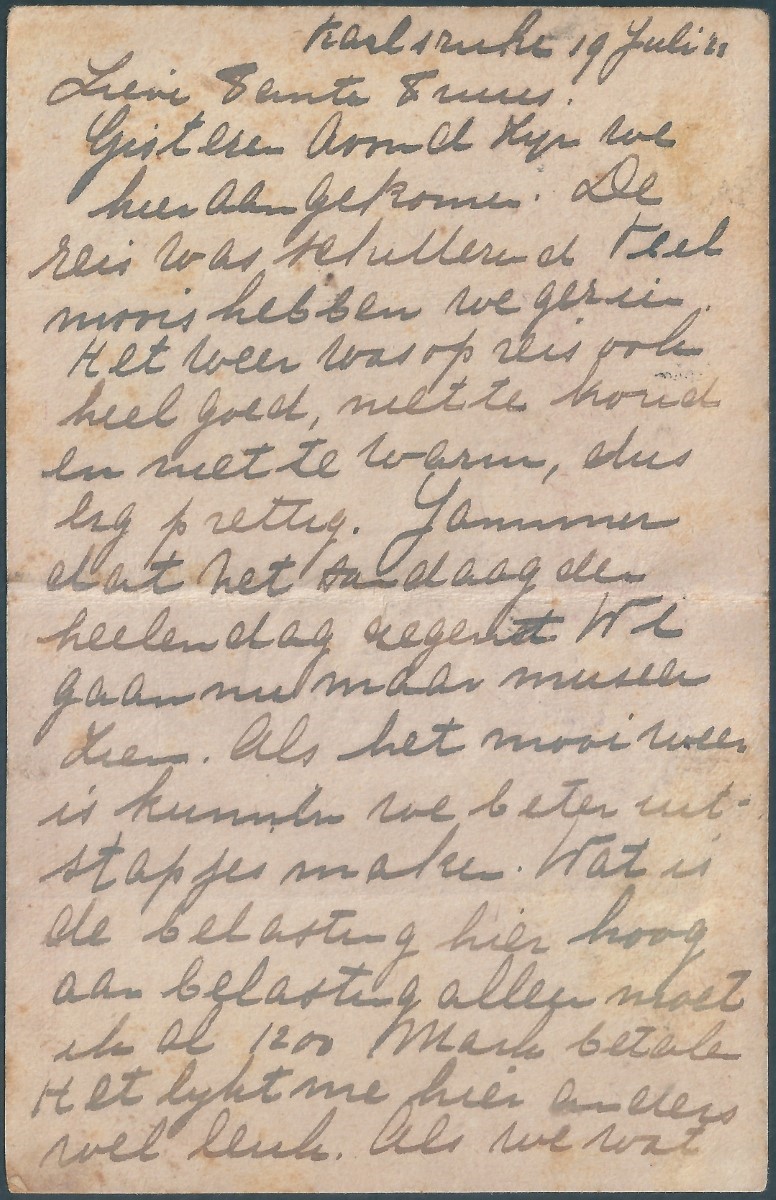 Karlsruhe 19 Juli 21
Lieve Tante Truus.
Gisteren Avond zijn we
hier aangekomen. De
reis was schitterend veel
moois hebben we gezien.
Het weer was op reis ook
heel goed, niet te koud
en niet te warm, dus
erg prettig. Jammer
dat het vandaag den
heelen dag regent We
gaan nu maar museen
zien. Als het mooi weer
is kunnen we beter uit-
stapjes maken. Wat is
de belasting hier hoog
aan belasting alleen moet
ik al 1200 Mark betalen
Het lijkt me hier anders
wel leuk. Als we wat